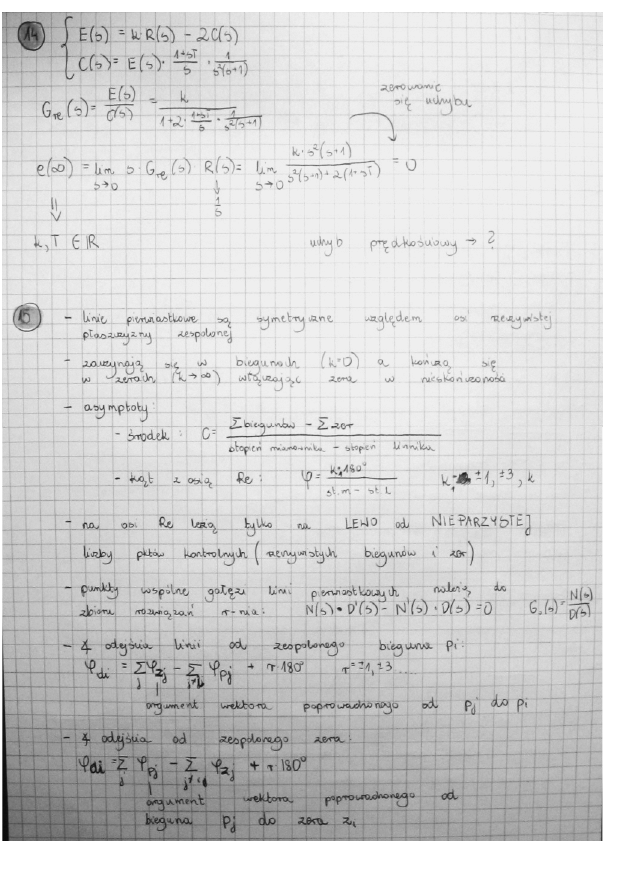 14 { E(s) = k·R(s) - 2C(s)
C(s) = E(s) · (1+sT)/s · 1/(s²(s+1))
G_re(s) = E(s)/C(s) = k / (1+2·(1+sT)/s · 1/(s²(s+1)))
zerowanie się uchybu
e(∞) = lim s→0 s·G_re(s) R(s) = lim s→0 k·s²(s+1) / (s²(s+1)+2(1+sT)) = 0
⇓ ↓ 1/s
k, T ∈ ℝ uchyb prędkościowy → ?
15 - linie pierwiastkowe są symetryczne względem osi rzeczywistej
płaszczyzny zespolonej
- zaczynają się w biegunach (k=0) a kończą się
w zerach (k→∞) włączając zera w nieskończoność
- asymptoty:
- środek: C = (Σbiegunów - Σzer) / (stopień mianownika - stopień licznika)
- kąt z osią Re: φ = k₁·180° / (st.m - st.l) k₁ = ±1, ±3, k
- na osi Re leżą tylko na LEWO od NIEPARZYSTEJ
liczby pktów kontrolnych (rzeczywistych biegunów i zer)
- punkty wspólne gałęzi linii pierwiastkowych należą do
zbioru rozwiązań r-nia: N(s)·D'(s) - N'(s)·D(s) = 0 G₀(s) = N(s)/D(s)
- ∢ odejścia linii od zespolonego bieguna pi:
φdi = Σj φzj - Σj≠i φpj + r·180° r = ±1, ±3 ....
argument wektora poprowadzonego od pj do pi
- ∢ odejścia od zespolonego zera:
φdi = Σj φpj - Σj≠i φzj + r·180°
argument wektora poprowadzonego od
bieguna pj do zera zi